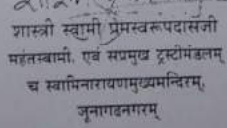 शास्त्री स्वामी प्रेमस्वरूपदासजी
महंतस्वामी, एवं सप्रमुख ट्रस्टीमंडलम्
च स्वामिनारायणमुख्यमन्दिरम्,
जुनागढनगरम्